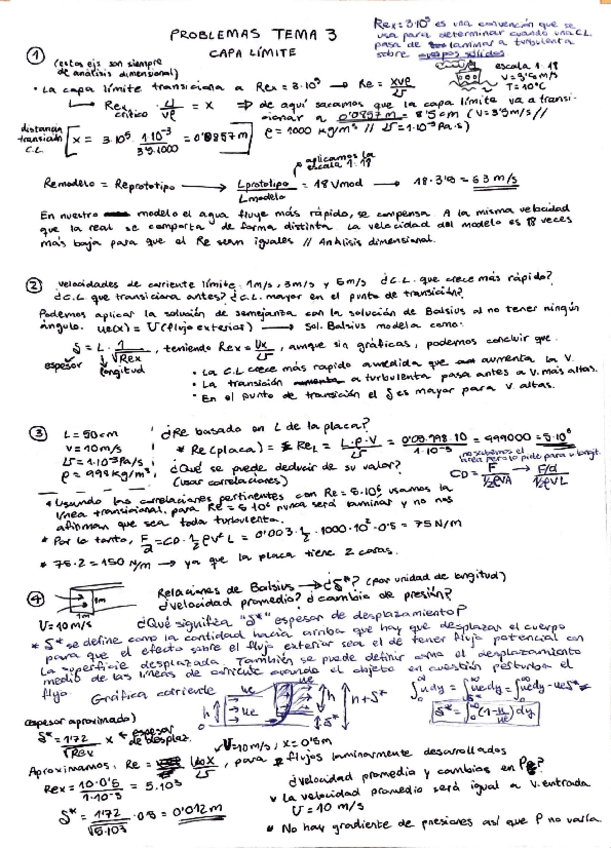 PROBLEMAS TEMA 3
CAPA LÍMITE
Rex = 3·10⁵ es una convención que se
usa para determinar cuando una C.L.
pasa de laminar a turbulenta
sobre cuerpos sólidos
① (estos ejs son siempre
de análisis dimensional)
escala 1:18
V = 3'5 m/s
T = 10°C
· La capa límite transiciona a Rex = 3·10⁵ → Re = xvρ/μ
↳ Rex crítico · μ/vρ = x ⇒ de aquí sacamos que la capa límite va a transi-
cionar a 0'0857m = 8'5cm (V = 3'5m/s //
ρ = 1000 kg/m³ // μ = 1·10⁻³ Pa·s)
distancia
transición
C.L.
x = 3·10⁵ · 1·10⁻³ / 3'5·1000 = 0'0857 m
aplicamos la
escala 1:18
Remodelo = Reprototipo → Lprototipo/Lmodelo = 18 Vmod → 18·3'5 = 63 m/s
En nuestro modelo el agua fluye más rápido, se compensa. A la misma velocidad
que la real se comporta de forma distinta. La velocidad del modelo es 18 veces
más baja para que el Re sean iguales // Análisis dimensional.
② velocidades de corriente límite: 1m/s, 3m/s y 5m/s ¿C.L. que crece más rápido?
¿C.L. que transiciona antes? ¿C.L. mayor en el punto de transición?
Podemos aplicar la solución de semejanza con la solución de Balsius al no tener ningún
ángulo. ue(x) = U (flujo exterior) → Sol. Balsius modela como:
δ = L · 1/√Rex , teniendo Rex = Ux/μ , aunque sin gráficas, podemos concluir que:
espesor longitud
· La C.L crece más rapido a medida que aumenta la V.
· La transición a turbulenta pasa antes a V. más altas.
· En el punto de transición el δ es mayor para V. altas.
③ L = 50cm
V = 10m/s
μ = 1·10⁻³ Pa/s
ρ = 998 kg/m³
¿Re basado en L de la placa?
* Re (placa) = ReL = L·ρ·V/μ = 0'05·998·10 / 1·10⁻³ = 499000 = 5·10⁶
¿Qué se puede deducir de su valor?
(usar correlaciones)
CD = F/½ρVA → F/d / ½ρVL
* Usando las correlaciones pertinentes con Re = 5·10⁶ usamos la
línea transicional, para Re = 5·10⁶ nunca será laminar y no nos
afirman que sea toda turbulenta.
* Por lo tanto, F/a = CD · ½ ρV² L = 0'003 · ½ · 1000 · 10² · 0'5 = 75 N/m
* 75·2 = 150 N/m → ya que la placa tiene 2 caras.
④ 1m
1m
U = 10 m/s
Relaciones de Balsius → ¿δ*? (por unidad de longitud)
¿velocidad promedio? ¿cambio de presión?
¿Qué significa "δ*" espesor de desplazamiento?
* δ* se define como la cantidad hacia arriba que hay que desplazar el cuerpo
para que el efecto sobre el flujo exterior sea el de tener flujo potencial en
la superficie desplazada. También se puede definir como el desplazamiento
medio de las líneas de corriente cuando el objeto en cuestión perturba el
flujo. Gráfica corriente
ue ue h h+δ* δ*
∫udy = ∫uedy = ∫uedy - ueδ*
δ* = ∫(1 - u/ue) dy
espesor aproximado)
δ* = 1'72/√Rex x ← espesor
de desplaz.
U = 10m/s, x = 0'5m
Aproximamos, Re = U∞X/μ , para flujos laminarmente desarrollados
Rex = 10·0'5 / 1·10⁻³ = 5·10³
δ* = 1'72/√5·10³ · 0'5 = 0'012 m
¿velocidad promedio y cambios en P?
* La velocidad promedio será igual a V. entrada
U = 10 m/s
* No hay gradiente de presiones así que P no varía.